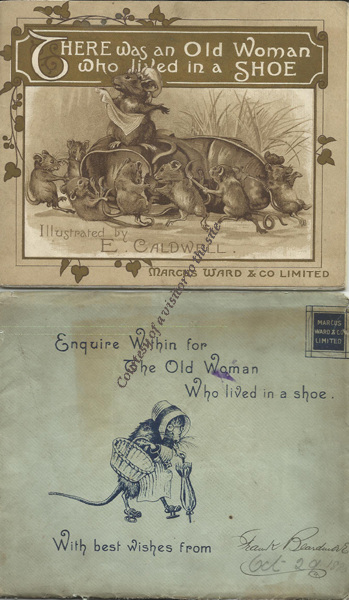 THERE was an Old Woman
who lived in a SHOE
Illustrated by
E. CALDWELL.
MARCUS WARD & CO LIMITED
Courtesy of a visitor to the site
MARCUS
WARD & Co
LIMITED
Enquire Within for
The Old Woman
Who lived in a shoe.
With best wishes from
Frank
Oct 29